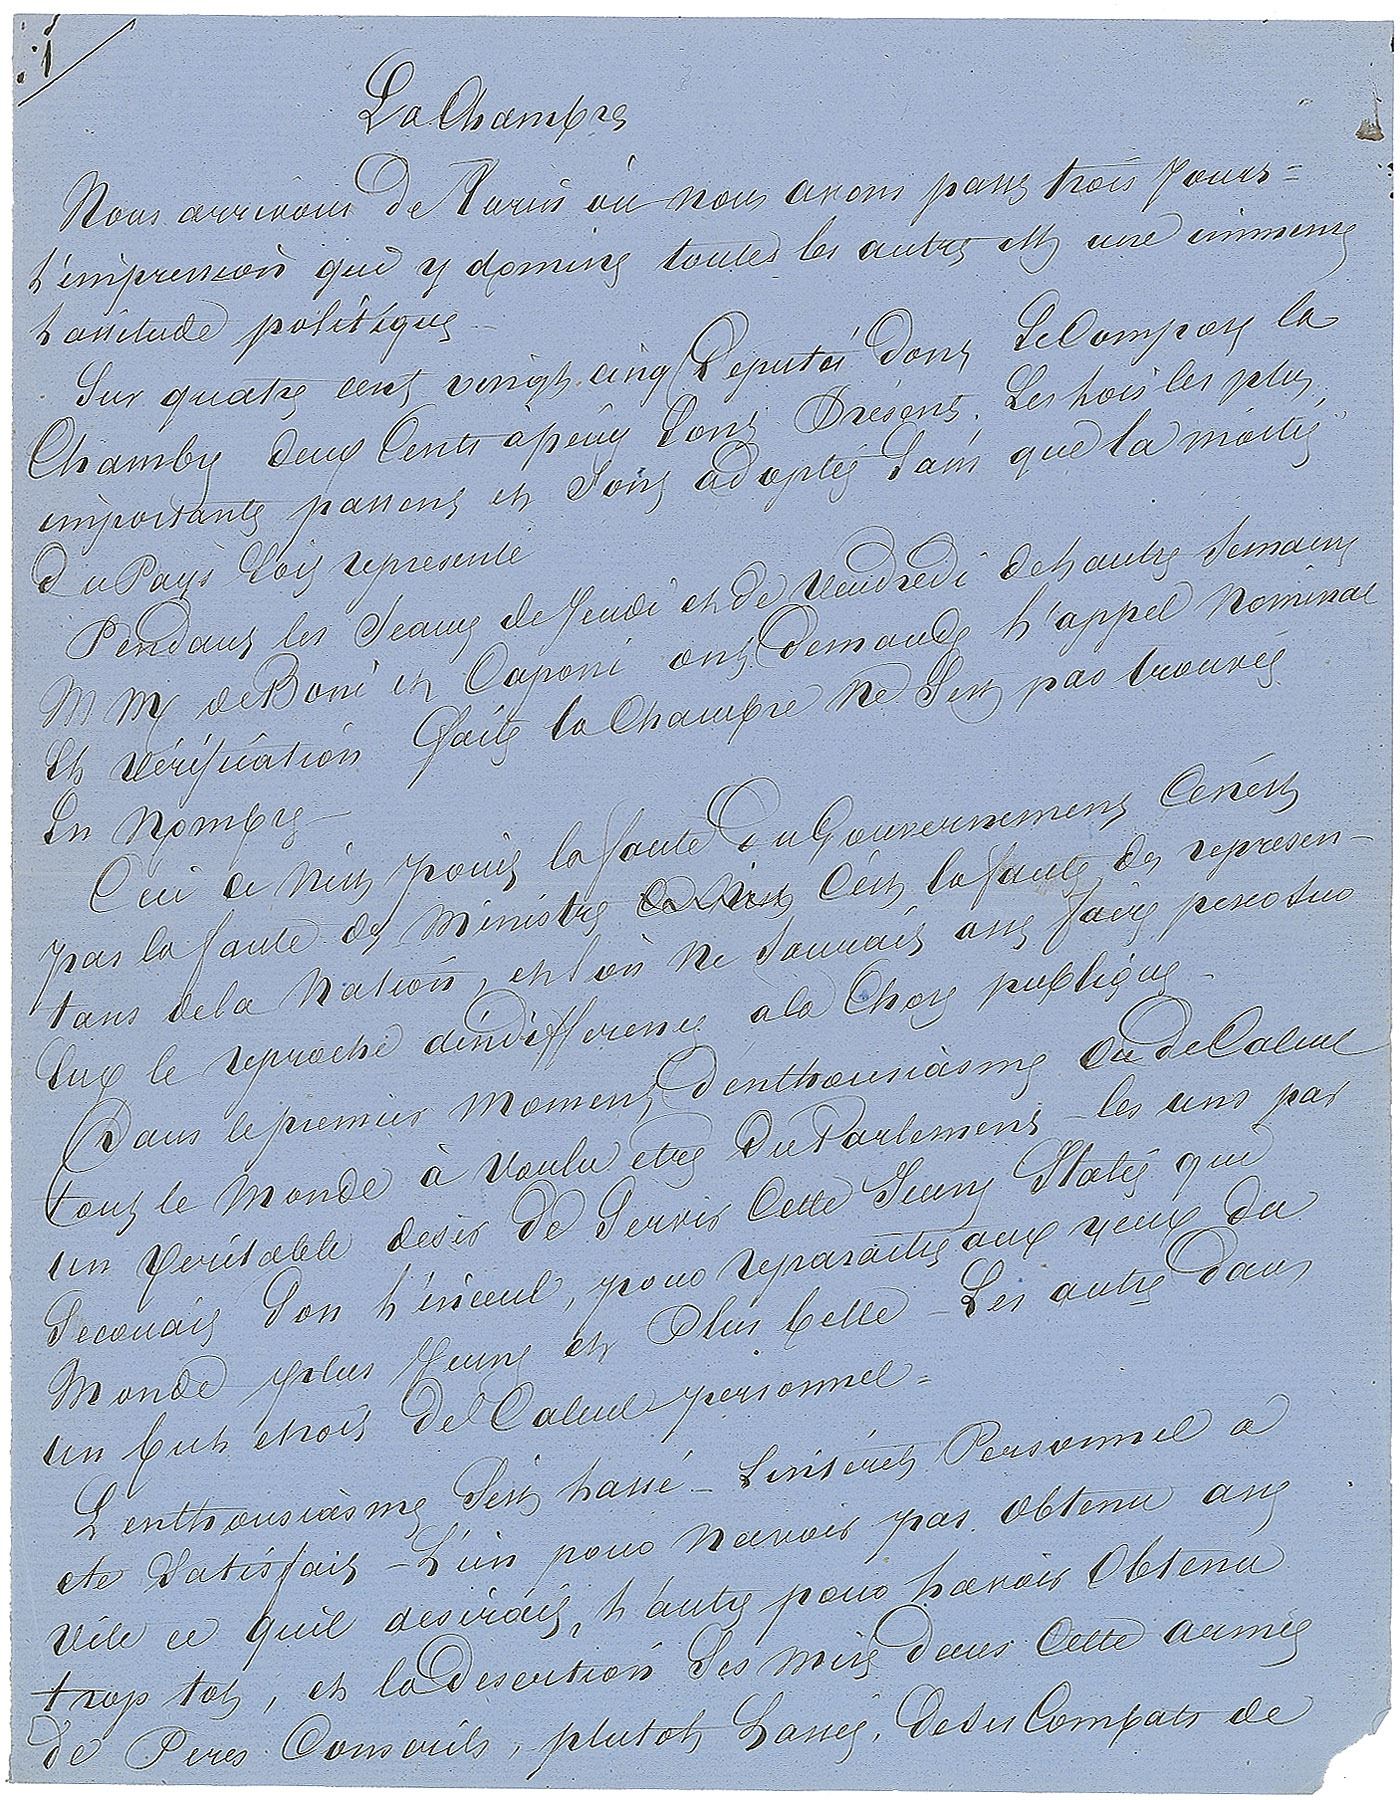 1
La Chambre
Nous arrivons de Turin où nous avons passé trois Jours =
L'impression qui y domine toutes les autres est une immense
Lassitude politique –
Sur quatre cent vingt cinq Deputés dont Se Compose la
Chambre deux Cents à peine Sont Présents. Les Lois les plus
importantes passent et Sont adoptés Sans que la moitié
du Pays Soit representé
Pendant les Seances de Jeudi et de Vendredi de L'autre Semaine
M My de Boni et Caponi ont demandé L'appel Nominal
Et vérification faite la Chambre ne S'est pas trouvée
En Nombre –
Ceci ce N'est point la faute Du Gouvernement Ce n'est
pas la faute des Ministre C'est la faute des represen–
tans de la Nation, et l'on ne Saurait assez faire peser Sur
Eux le reproche d'indifference à la Chose publique –
Dans le premier Moment d'enthousiasme Ou de Calcul
tout le Monde à Voulu etre Du Parlement – les uns par
un Veritable desir de Servir Cette Jeune Italie qui
Secouait Son Linceul, pour reparaitre aux yeux du
Monde plus Jeune et Plus belle – Les autre dans
un but etroit de Calcul personnel =
L'enthousiasme S'est Lassé – L'intéret Personnel a
ete Satisfait – L'un pour N'avoir pas Obtenu assez
Vite ce qu'il desirait, L'autre pour L'avoir Obtenu
trop tot, et la Desertion S'es mise dans Cette armée
de Peres Conscrits, plutot Lassée, De Ses Combats de